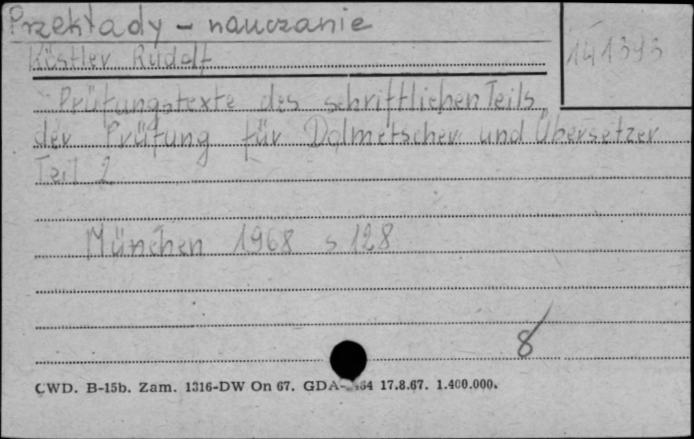 Przekłady - nauczanie
Köstler Rudolf
141393
Prüfungstexte des schriftlichen Teils
der Prüfung für Dolmetscher und Übersetzer
Teil 2
München 1968 s 128
8
CWD. B-15b. Zam. 1316-DW On 67. GDA- 64 17.8.67. 1.400.000.